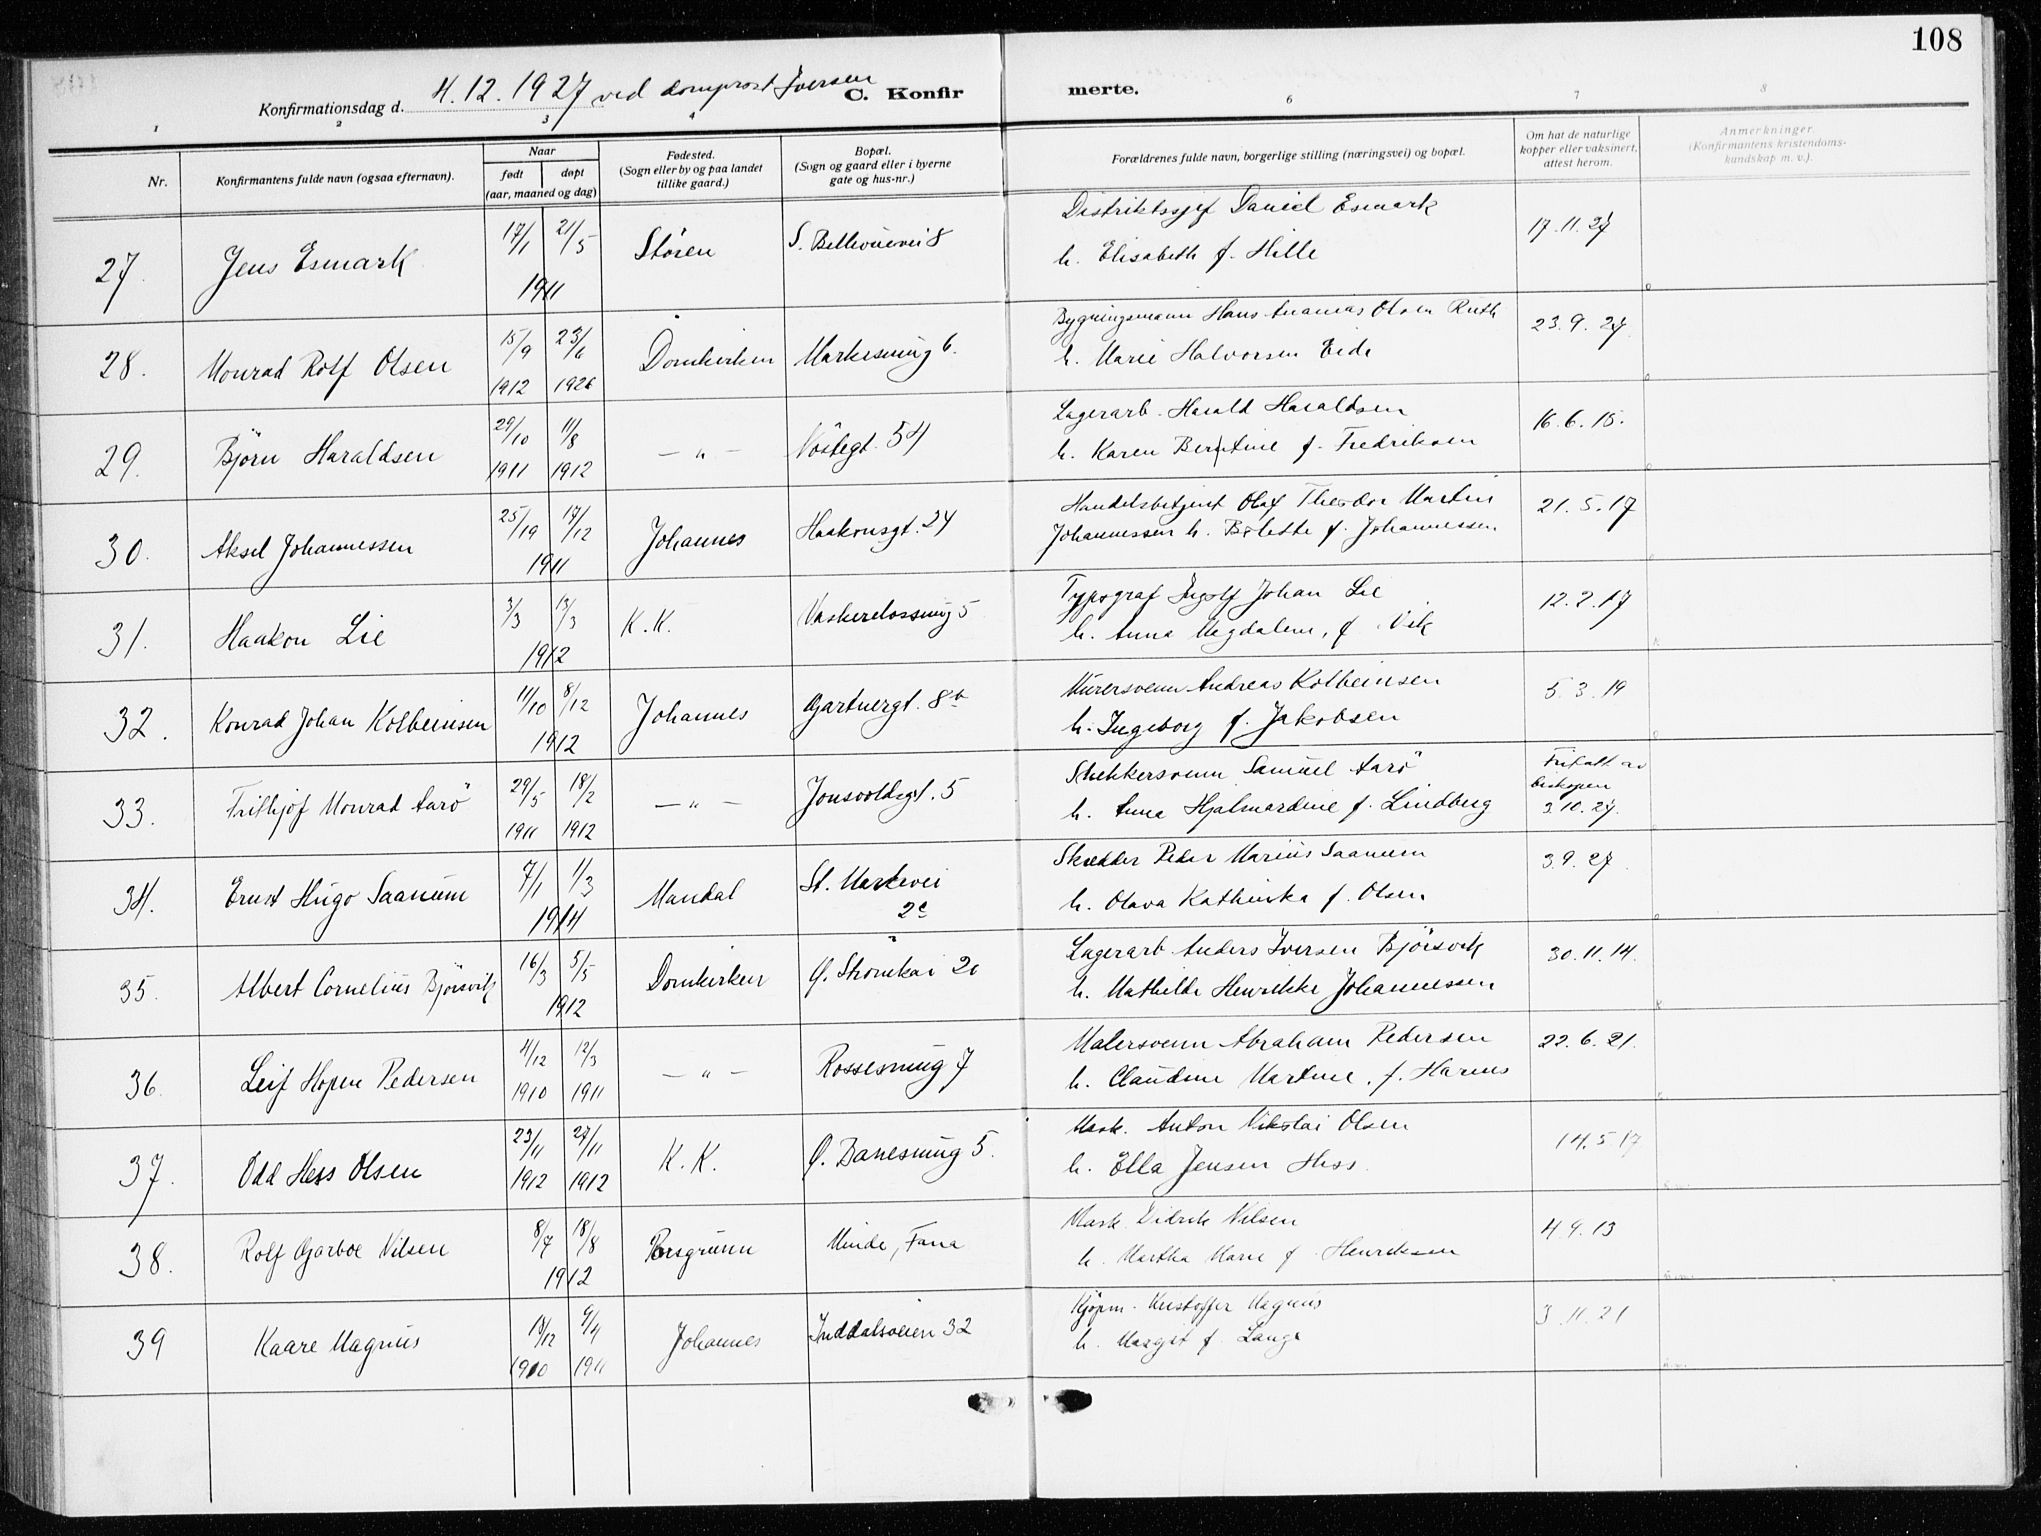 108
Konfirmationsdag d. 4.12.1927 ved domprost Iversen
C. Konfir merte.
1 2 3 4 6 7 8
Nr.
Konfirmantens fulde navn (ogsaa efternavn).
Naar
født døpt
(aar, maaned og dag)
Fødested.
(Sogn eller by og paa landet
tillike gaard.)
Bopæl.
(Sogn og gaard eller i byerne
gate og hus-nr.)
Forældrenes fulde navn, borgerlige stilling (næringsvei) og bopæl.
Om hat de naturlige
kopper eller vaksinert,
attest herom.
Anmerkninger
(Konfirmantens kristendoms-
kundskap m. v.).
27. Jens Esmark 17/1 21/5 1911 Stören S. Bellevuevei 8
Distriktssjef Daniel Esmark
h. Elisabeth f. Hille
17.11.27
28. Monrad Rolf Olsen 15/9 1912 23/6 1926 Domkirken Markesmug 6.
Bygningsmann Hans Ananias Olsen Ruth
h. Marie Halvorsen Eide
23.9.27
29. Björn Haraldsen 29/10 1911 11/8 1912 — „ — Nöstegt. 54
Lagerarb. Harald Haraldsen
h. Karen Berntine f. Fredriksen
16.6.15.
30. Aksel Johannessen 25/10 17/12 1911 Johannes Haakonsgt. 24
Handelsbetjent Olaf Theodor Martin
Johannessen h. Bolette f. Johannessen
21.5.17
31. Haakon Lie 3/3 13/3 1912 K.K. Vaskerelvssmug 5
Typograf Ingolf Johan Lie
h. Anna Magdalene, f. Vik
12.2.17
32. Konrad Johan Kolbeinsen 11/10 8/12 1912 Johannes Gartnergt. 8b
Murersvenn Andreas Kolbeinsen
h. Ingeborg f. Jakobsen
5.3.19
33. Frithjof Monrad Aarö 29/5 1911 18/2 1912 — „ — Jonsvoldsgt. 5
Snekkersvenn Samuel Aarö
h. Anna Hjalmardine f. Lindberg
Fritatt av
biskopen
3.10.27.
34. Ernst Hugo Saanum 7/1 1/3 1914 Mandal St. Markevei
2c
Skredder Peder Marius Saanum
h. Olava Kathinka f. Olsen
3.9.27.
35. Albert Cornelius Björsvik 16/3 5/5 1912 Domkirken Ö. Strömkai 20
Lagerarb Anders Iversen Björsvik
h. Mathilde Henrikke Johannessen
30.11.14.
36. Leif Hopen Pedersen 4/12 1910 12/3 1911 — „ — Rossesmug 7
Malersvenn Abraham Pedersen
h. Claudine Martine, f.
22.6.21.
37. Odd Hess Olsen 23/11 1912 27/11 1912 K.K. Ö. Banesmug 5.
Mask. Anton Nikolai Olsen
h. Ella Jensen Hess.
14.5.17
38. Rolf Gjarboe Nilsen 8/7 18/8 1912 Porsgrunn Minde, Fana
Mask. Didrik Nilsen
h. Martha Marie f. Henriksen
4.9.13
39 Kaare Magnus 1910 9/4 1911 Johannes Inddalsveien 32
Kjöpm. Kristoffer Magnus
h. Margit f. Lange
3.11.21